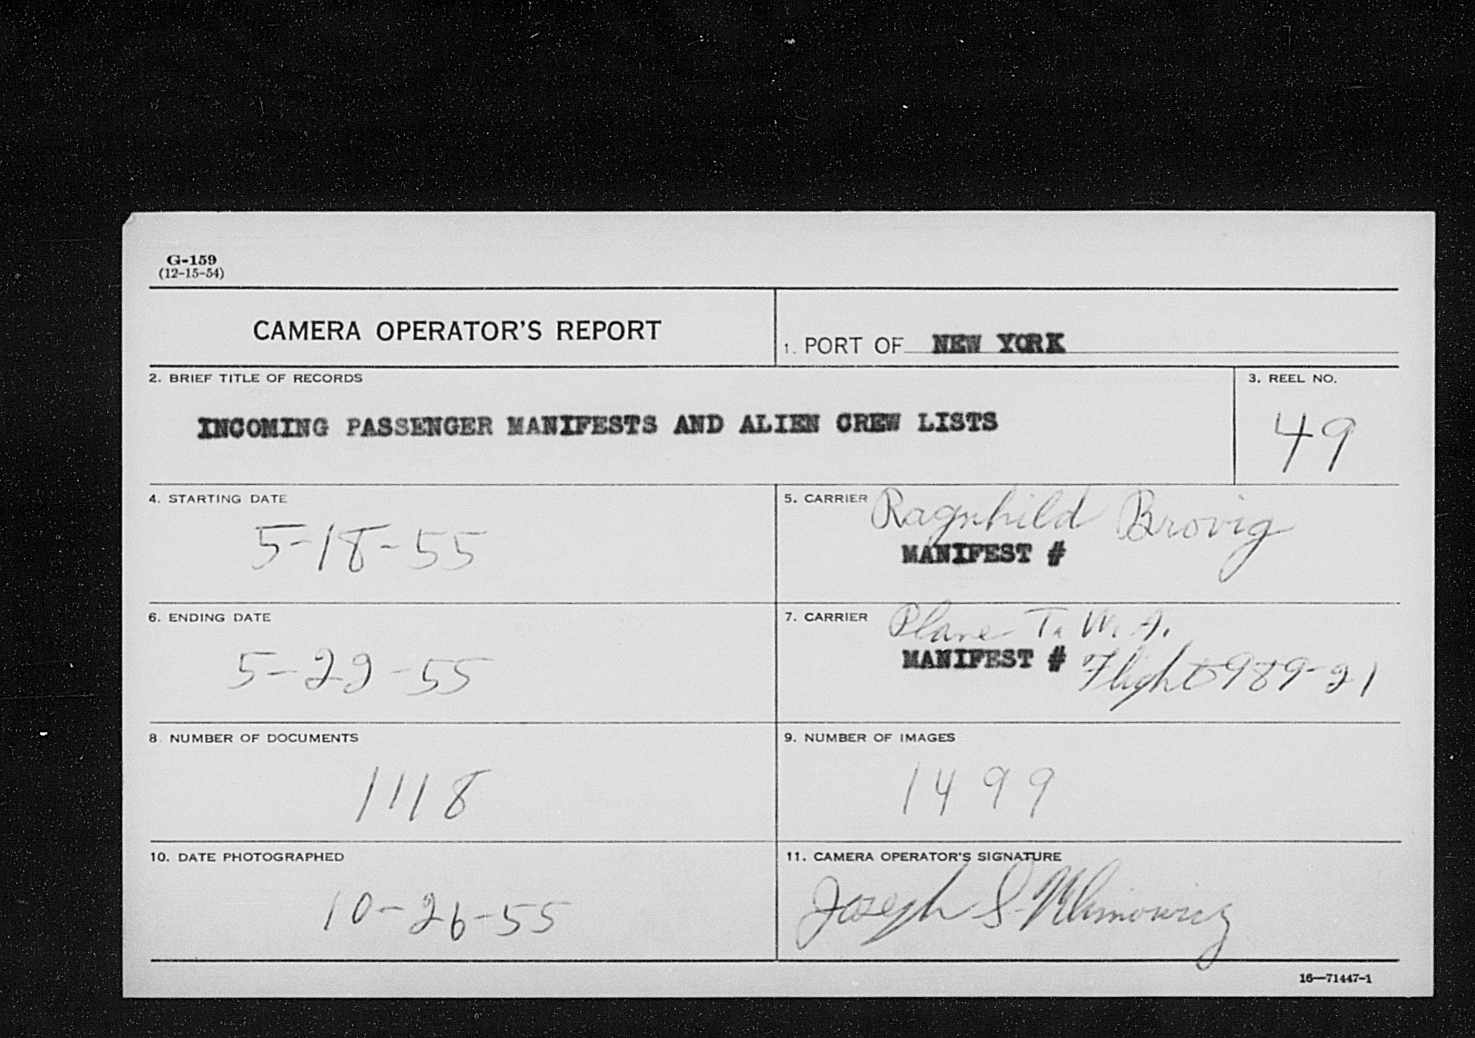 G-159
(12-15-54)
CAMERA OPERATOR'S REPORT
1. PORT OF NEW YORK
2. BRIEF TITLE OF RECORDS
INCOMING PASSENGER MANIFESTS AND ALIEN CREW LISTS
3. REEL NO.
49
4. STARTING DATE
5-18-55
5. CARRIER Ragnhild Brovig
MANIFEST #
6. ENDING DATE
5-22-55
7. CARRIER Plane T.W.A.
MANIFEST # Flight 989-21
8. NUMBER OF DOCUMENTS
1118
9. NUMBER OF IMAGES
1499
10. DATE PHOTOGRAPHED
10-26-55
11. CAMERA OPERATOR'S SIGNATURE
Joseph S. Klimowicz
16—71447-1